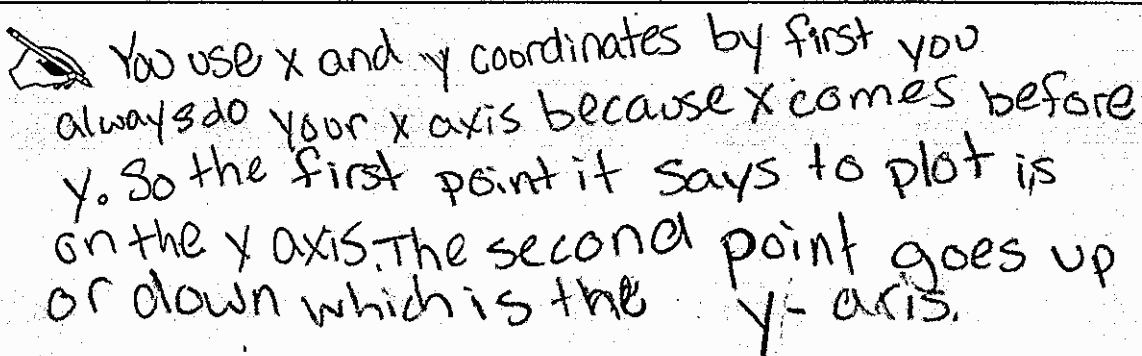 You use x and y coordinates by first you
always do your x axis because x comes before
y. So the first point it says to plot is
on the y axis. The second point goes up
or down which is the y-axis.